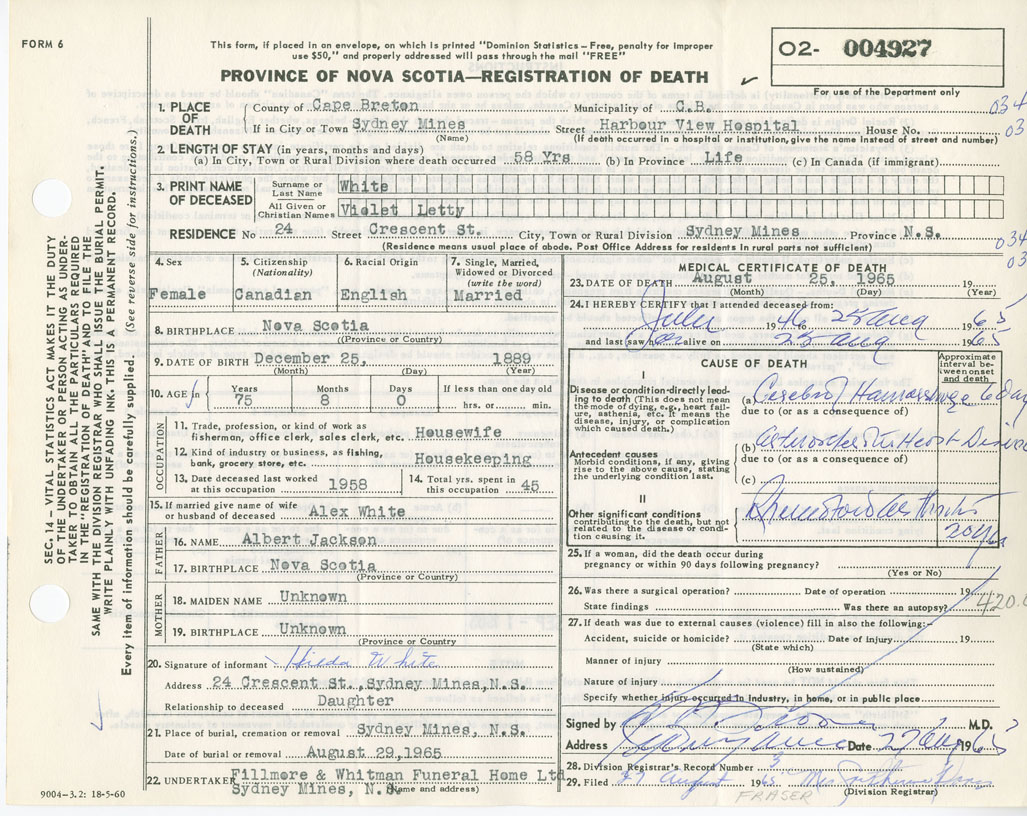 FORM 6
This form, if placed in an envelope, on which is printed "Dominion Statistics – Free, penalty for improper
use $50," and properly addressed will pass through the mail "FREE"
PROVINCE OF NOVA SCOTIA—REGISTRATION OF DEATH
O2- 004927
For use of the Department only
SEC. 14 – VITAL STATISTICS ACT MAKES IT THE DUTY
OF THE UNDERTAKER OR PERSON ACTING AS UNDER-
TAKER TO OBTAIN ALL THE PARTICULARS REQUIRED
IN THE "REGISTRATION OF DEATH" AND TO FILE THE
SAME WITH THE DIVISION REGISTRAR WHO SHALL ISSUE THE BURIAL PERMIT.
WRITE PLAINLY WITH UNFADING INK. THIS IS A PERMANENT RECORD.
Every item of information should be carefully supplied. (See reverse side for instructions.)
1. PLACE OF DEATH
County of Cape Breton Municipality of C.B.
034
If in City or Town Sydney Mines Street Harbour View Hospital House No.
03
(Name) (If death occurred in a hospital or institution, give the name instead of street and number)
2. LENGTH OF STAY (in years, months and days)
(a) In City, Town or Rural Division where death occurred 58 Yrs (b) In Province Life (c) In Canada (if immigrant)
3. PRINT NAME OF DECEASED
Surname or Last Name White
All Given or Christian Names Violet Letty
RESIDENCE No 24 Street Crescent St. City, Town or Rural Division Sydney Mines Province N.S.
034
(Residence means usual place of abode. Post Office Address for residents in rural parts not sufficient)
03
4. Sex
Female
5. Citizenship
(Nationality)
Canadian
6. Racial Origin
English
7. Single, Married,
Widowed or Divorced
(write the word)
Married
8. BIRTHPLACE Nova Scotia
(Province or Country)
9. DATE OF BIRTH December 25, 1889
(Month) (Day) (Year)
10. AGE
Years 75
Months 8
Days 0
If less than one day old
hrs. or min.
OCCUPATION
11. Trade, profession, or kind of work as
fisherman, office clerk, sales clerk, etc. Housewife
12. Kind of industry or business, as fishing,
bank, grocery store, etc. Housekeeping
13. Date deceased last worked
at this occupation 1958
14. Total yrs. spent in
this occupation 45
15. If married give name of wife
or husband of deceased Alex White
FATHER
16. NAME Albert Jackson
17. BIRTHPLACE Nova Scotia
(Province or Country)
MOTHER
18. MAIDEN NAME Unknown
19. BIRTHPLACE Unknown
(Province or Country)
20. Signature of informant Hilda White
Address 24 Crescent St.,Sydney Mines,N.S.
Relationship to deceased Daughter
21. Place of burial, cremation or removal Sydney Mines, N.S.
Date of burial or removal August 29,1965
22. UNDERTAKER Fillmore & Whitman Funeral Home Ltd
Sydney Mines, N.S.
(Name and address)
9004–3.2: 18-5-60
MEDICAL CERTIFICATE OF DEATH
23. DATE OF DEATH August 25, 1965 19
(Month) (Day) (Year)
24. I HEREBY CERTIFY that I attended deceased from:
July 1946 to 25 Aug 1965
and last saw her alive on 25 Aug 1965
CAUSE OF DEATH
Approximate
interval be-
tween onset
and death
I
Disease or condition-directly lead-
ing to death (This does not mean
the mode of dying, e.g., heart fail-
ure, asthenia, etc. It means the
disease, injury, or complication
which caused death.)
(a) Cerebral Hemorrhage 6 day
due to (or as a consequence of)
Antecedent causes
Morbid conditions, if any, giving
rise to the above cause, stating
the underlying condition last.
(b) Arteriosclerotic Heart Disease
due to (or as a consequence of)
(c)
II
Other significant conditions
contributing to the death, but not
related to the disease or condi-
tion causing it.
Rheumatoid arthritis
20 yrs
25. If a woman, did the death occur during
pregnancy or within 90 days following pregnancy?
(Yes or No)
26. Was there a surgical operation? Date of operation 19
State findings Was there an autopsy?
420.0
27. If death was due to external causes (violence) fill in also the following:–
Accident, suicide or homicide? Date of injury 19
(State which)
Manner of injury
(How sustained)
Nature of injury
Specify whether injury occurred in industry, in home, or in public place
Signed by M.D.
Address Sydney Mines Date 27 Aug 1965
28. Division Registrar's Record Number
29. Filed 27 August 1965 Mrs
(Division Registrar)
FRASER